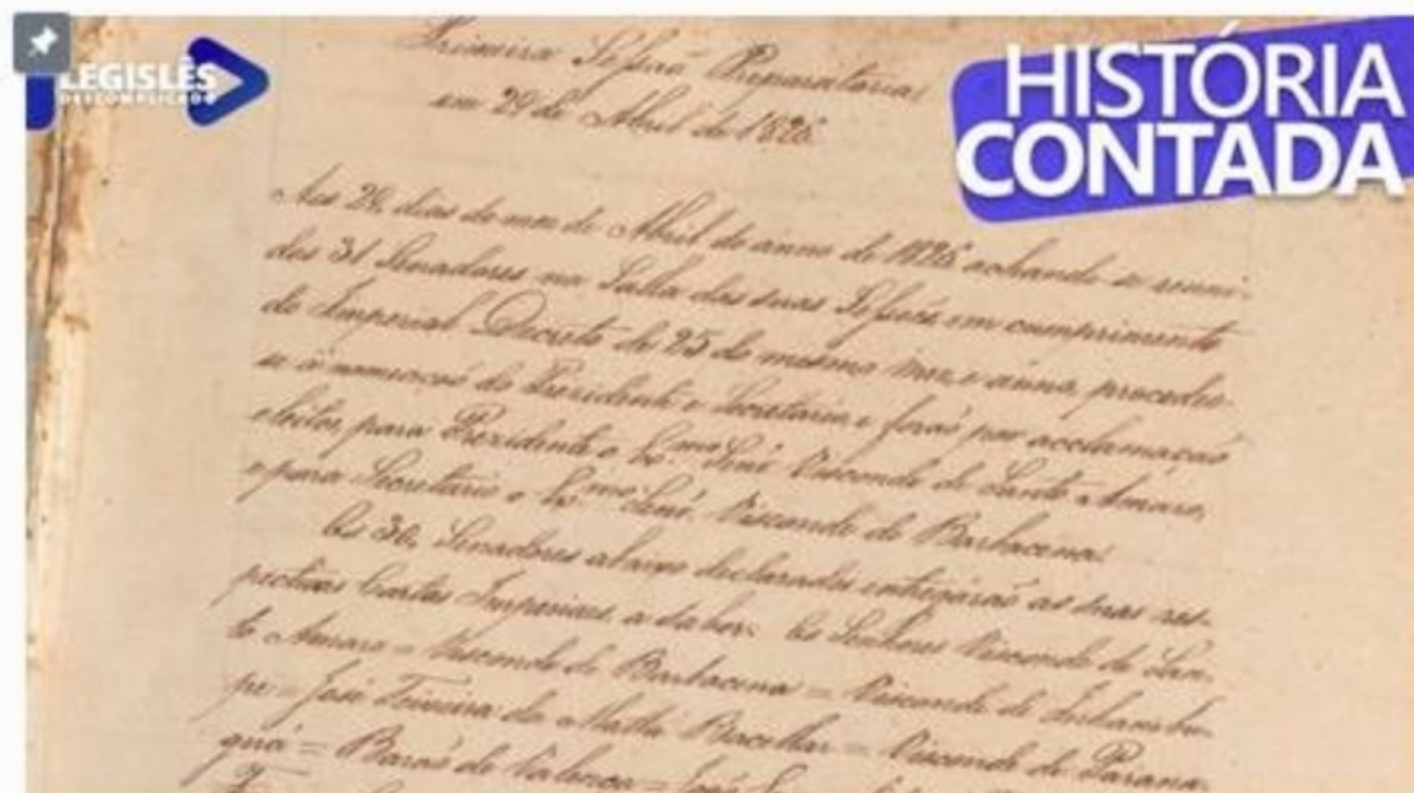 LEGISLÊS
DESCOMPLICADO
HISTÓRIA
CONTADA
Primeira Sessaõ Preparatoria
em 29 de Abril de 1826
Aos 29 dias do mez de Abril do anno de 1826 achando se reuni-
dos 31 Senadores na Salla das suas Sessões em cumprimento
do Imperial Decreto de 25 do mesmo mez, e anno, procedeo-
se á nomeaçaõ do Prezidente e Secretario, e foraõ por acclamaçaõ
eleitos, para Prezidente o Ex.mo Senr. Visconde de Santo Amaro,
e para Secretario o Ex.mo Senr. Visconde de Barbacena.
Os 30, Senadores abaixo declarados entregáraõ as suas res-
pectivas Cartas Imperiaes, a saber: Os Senhores Visconde de San-
to Amaro = Visconde de Barbacena = Visconde de Inhambu-
pe = José Teixeira da Matta Bacellar = Visconde de Parana-
guá = Baraõ de Valença = José